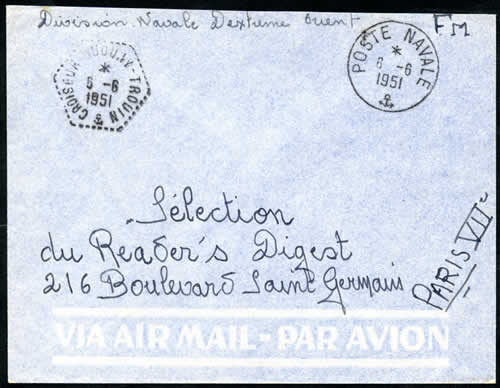 Division Navale D'extreme Orient
FM
CROISEUR DUGUAY-TROUIN
*
6-6
1951
POSTE NAVALE
*
6-6
1951
Sélection
du Reader's Digest
216 Boulevard Saint Germain
PARIS VII=
VIA AIR MAIL-PAR AVION